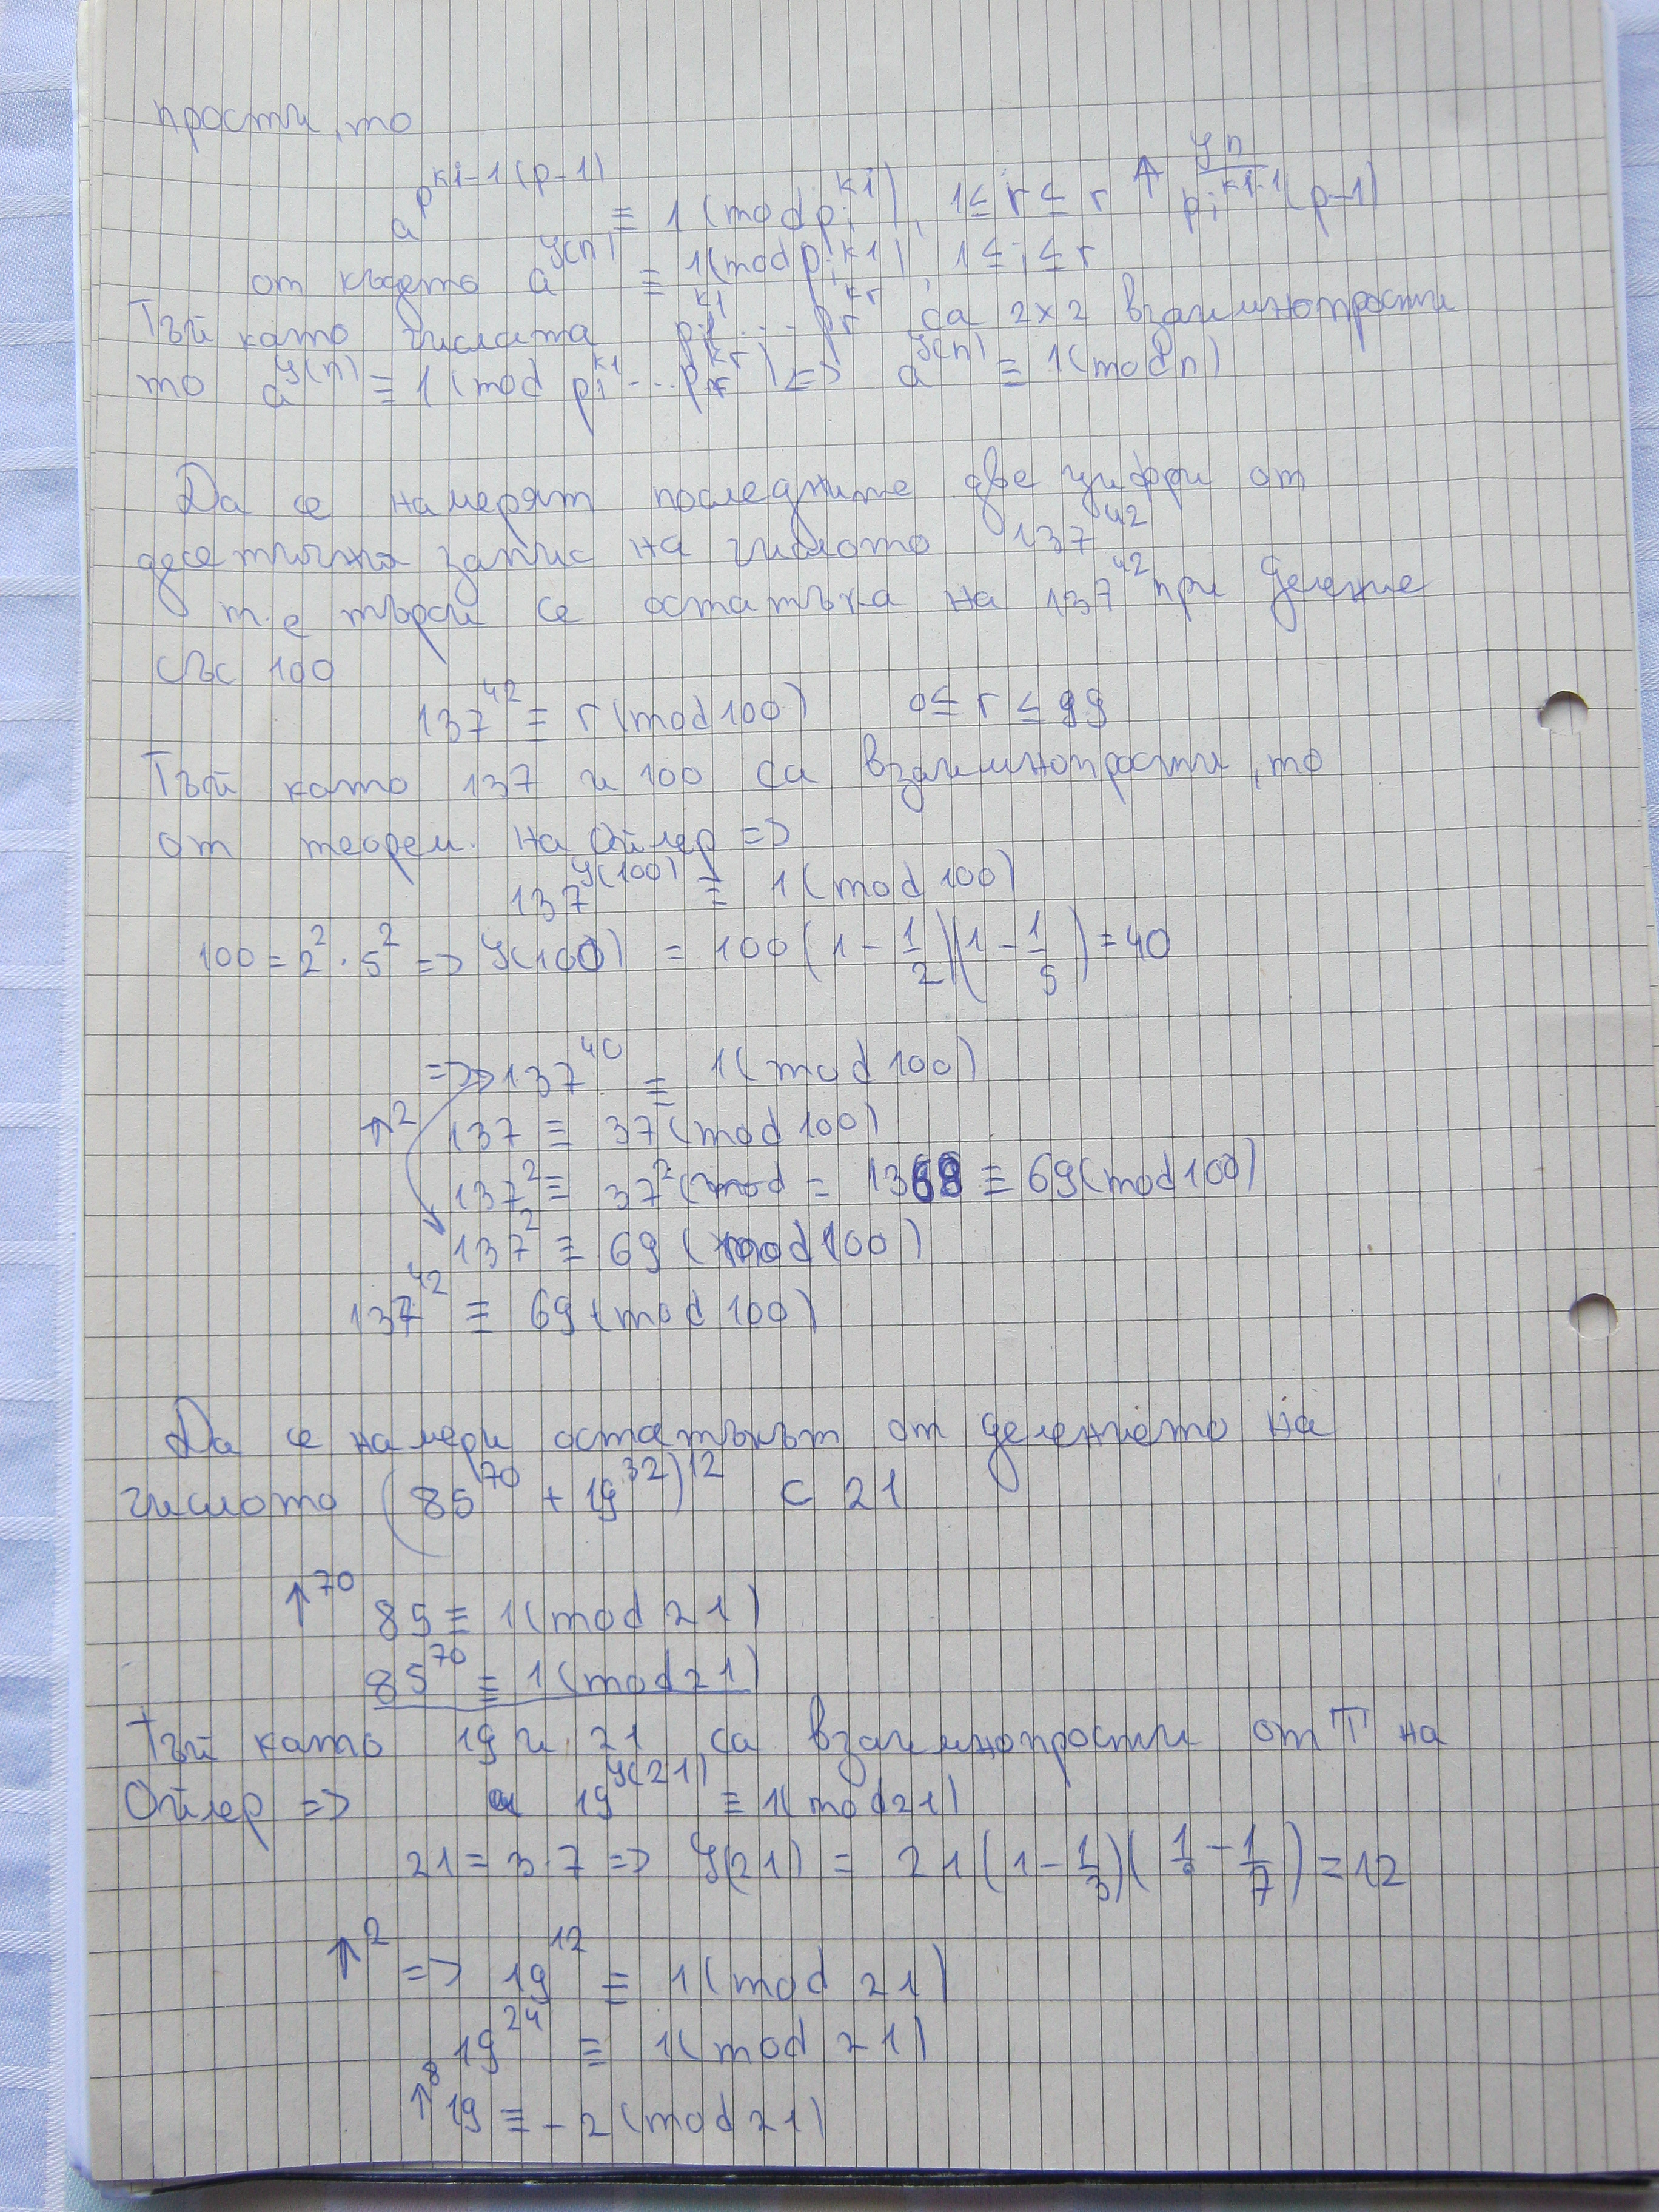 прости, то
a^p^ki-1(p-1) ≡ 1(mod pi^ki), 1 ≤ r ≤ r ↑ φn/pi^ki-1(p-1)
от където a^φ(n) ≡ 1(mod pi^k1), 1 ≤ i ≤ r
Тъй като числата p1^k1 ... pr^kr са 2x2 взаимнопрости
то a^φ(n) ≡ 1(mod p1^k1 ... pr^kr) <=> a^φ(n) ≡ 1(mod n)
Да се намерят последните две цифри от
десетичния запис на числото 137^42
т.е търси се остатъка на 137^42 при деление
със 100
137^42 ≡ r(mod 100) 0 ≤ r ≤ 99
Тъй като 137 и 100 са взаимнопрости, то
от теорем. на Ойлер =>
137^φ(100) ≡ 1(mod 100)
100 = 2^2 . 5^2 => φ(100) = 100(1 - 1/2)(1 - 1/5) = 40
=> 137^40 ≡ 1(mod 100)
↑2 137 ≡ 37(mod 100)
137^2 ≡ 37^2 = 1369 ≡ 69(mod 100)
137^2 ≡ 69(mod 100)
137^42 ≡ 69(mod 100)
Да се намери остатъкът от делението на
числото (85^70 + 19^32)^12 с 21
↑70 85 ≡ 1(mod 21)
85^70 ≡ 1(mod 21)
Тъй като 19 и 21 са взаимнопрости от Т на
Ойлер => 19^φ(21) ≡ 1(mod 21)
21 = 3.7 => φ(21) = 21(1 - 1/3)(1 - 1/7) = 12
↑2 => 19^12 ≡ 1(mod 21)
19^24 ≡ 1(mod 21)
↑8 19 ≡ -2(mod 21)